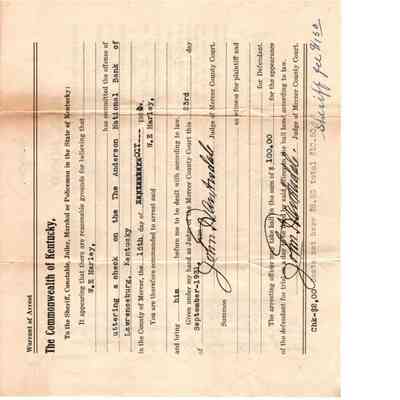 Warrant of Arrest
The Commonwealth of Kentucky,
To the Sheriff, Constable, Jailer, Marshal or Policeman in the State of Kentucky:
It appearing that there are reasonable grounds for believing that
W,E Harley,
has committed the offense of
uttering a check on the The Anderson National Bank of
Lawrenceburg, Kentucky
in the County of Mercer, the 15th day of
You are therefore commanded to arrest said W,E Harley,
and bring him before me to be dealt with according to law.
Given under my hand as Judge of the Mercer County Court this 23rd day
of September-1931.
Judge of Mercer County Court.
Summon as witness for plaintiff and
for Defendant.
The arresting officer may take bail in the sum of $ 100,00 for the appearance
of the defendant for trial
bail bond according to law.
Judge of Mercer County Court.
Chk-$2,00 total $10.50
Sheriff fee